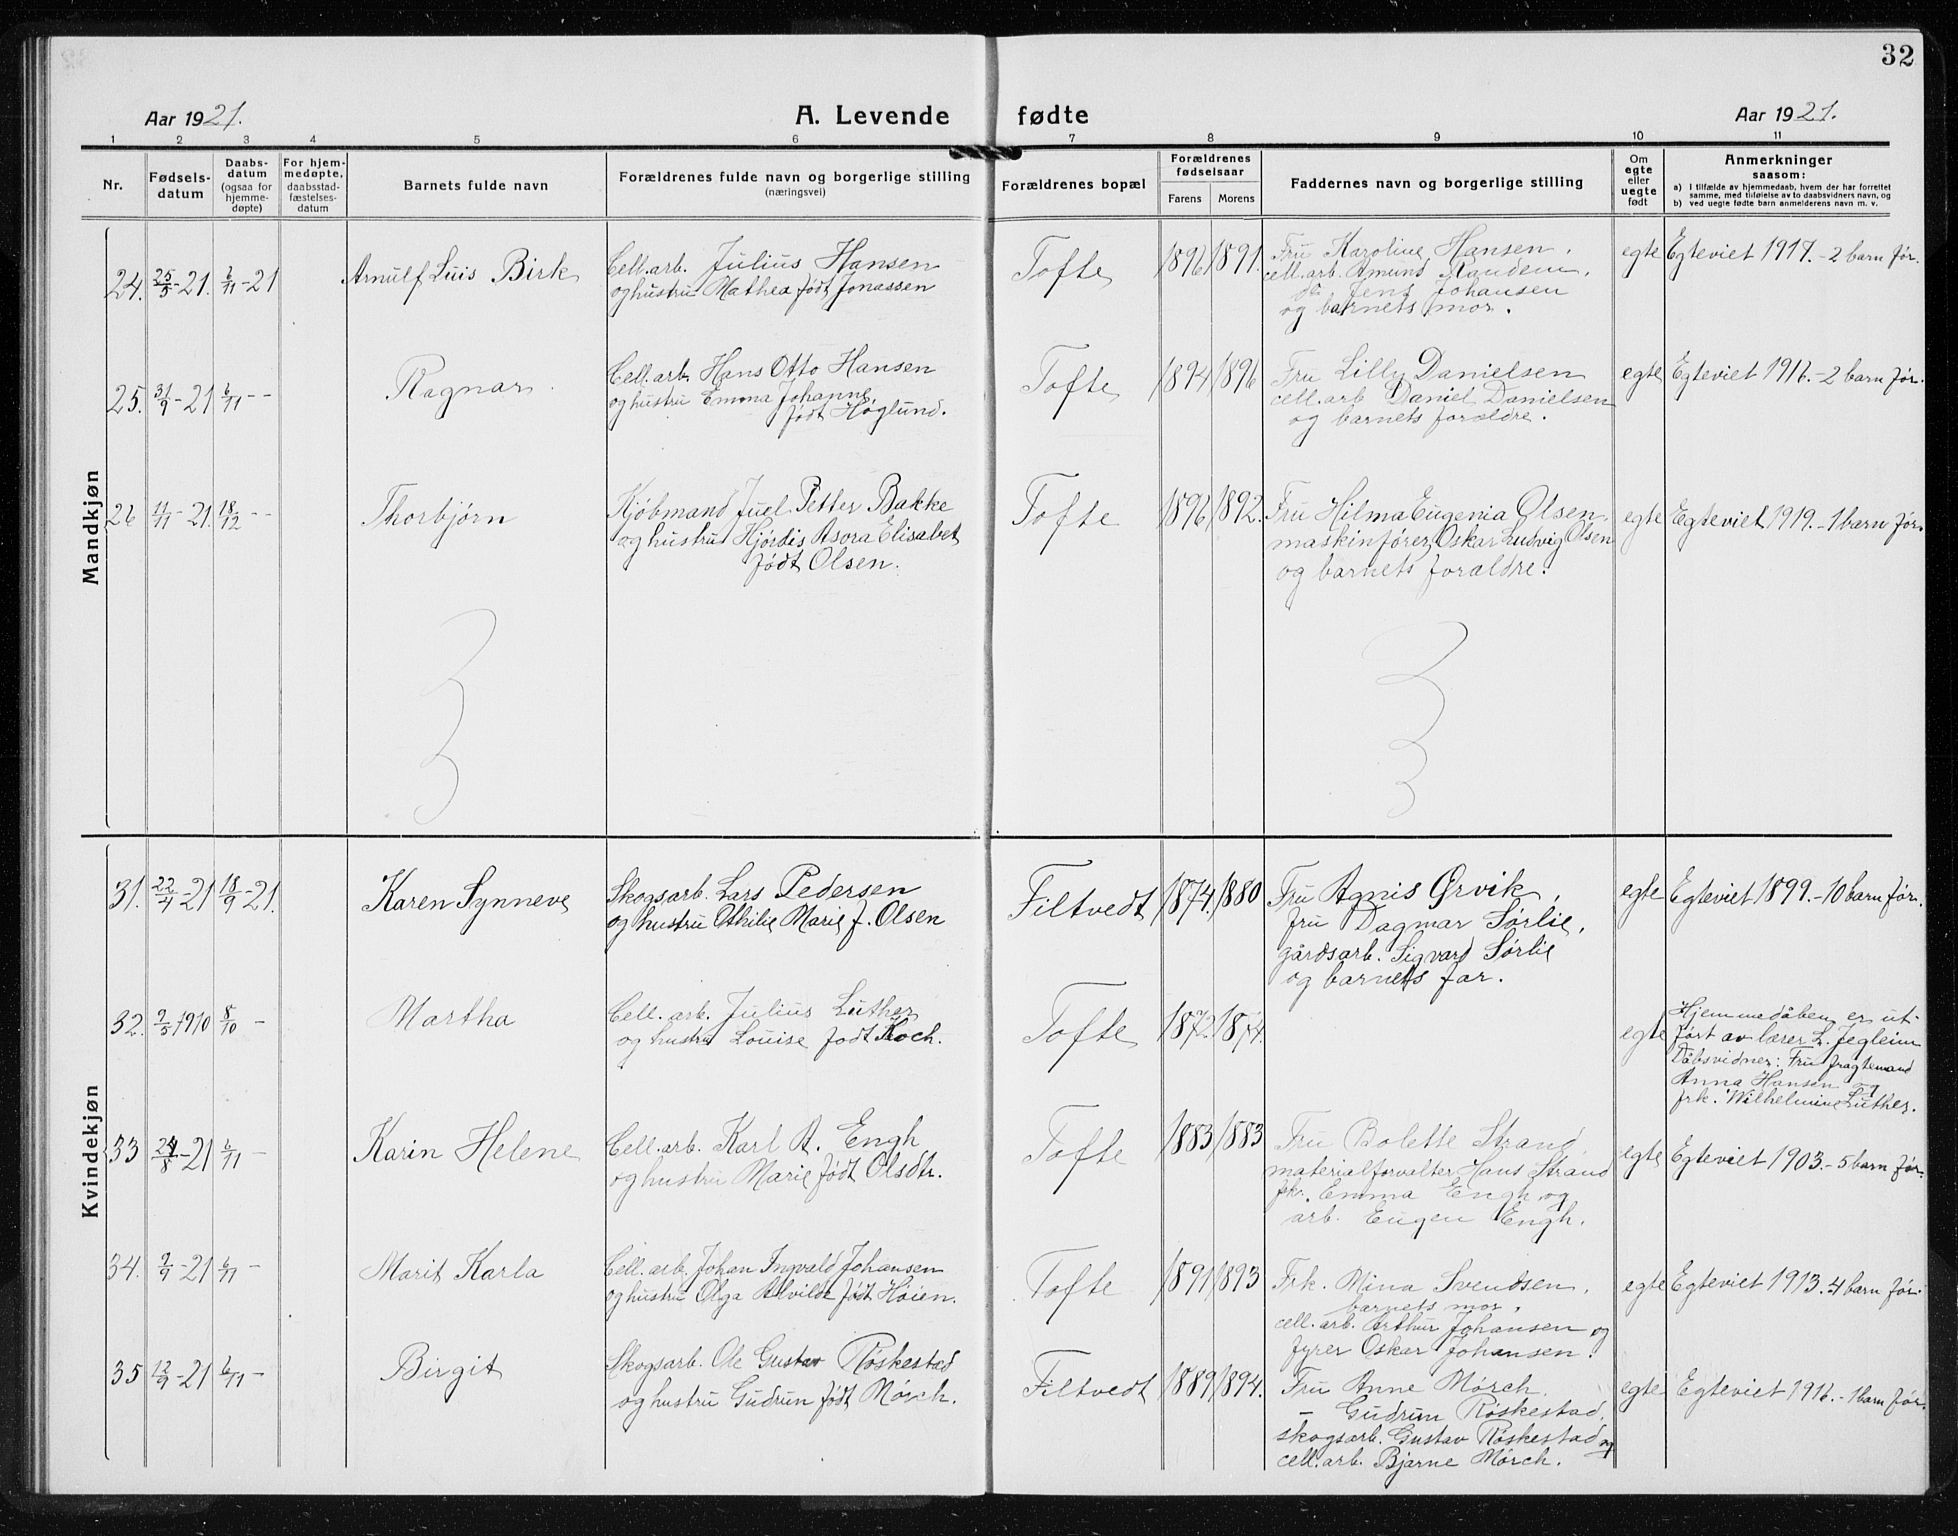 32
Aar 1921.
A. Levende fødte
Aar 1921.
1 2 3 4 5 6 7 8 9 10 11
Nr.
Fødsels-
datum
Daabs-
datum
(ogsaa for
hjemme-
døpte)
For hjem-
medøpte,
daabsstad-
fæstelses-
datum
Barnets fulde navn
Forældrenes fulde navn og borgerlige stilling
(næringsvei)
Forældrenes bopæl
Forældrenes
fødselsaar
Farens Morens
Faddernes navn og borgerlige stilling
Om
egte
eller
uegte
født
Anmerkninger
saasom:
a) I tilfælde av hjemmedaab, hvem der har forrettet
samme, med tilføielse av to daabsvidners navn, og
b) ved uegte fødte barn anmelderens navn m. v.
Mandkjøn
24. 25/5-21. 6/11-21 Arnulf Luis Birk
Cell.arb. Julius Hansen
og hustru Mathea født Jonassen
Tofte 1896 1891.
Fru Karoline Hansen,
cell.arb. Amund Randem,
do. Jens Johansen
og barnets mor.
egte Egteviet 1917.-2 barn før.
25. 31/9-21 6/11 - - Ragnar.
Cell.arb. Hans Otto Hansen
og hustru Emma Johanne,
født Høglund.
Tofte 1894 1896
Fru Lilly Danielsen
cell.arb Daniel Danielsen
og barnets foræeldre.
egte Egteviet 1916.-2 barn før.
26 11/11-21. 18/12 - - Thorbjørn
Kjøbmand Juel Petter Bakke
og hustru Hjørdis Asora Elisabet
født Olsen.
Tofte 1896 1892.
Fru Hilma Eugenia Olsen,
maskinfører Oskar Ludvig Olsen
og barnets forældre.
egte Egteviet 1919.-1 barn før.
Kvindekjøn
31. 22/4-21 18/9-21. Karen Synneve
Skogsarb. Lars Pedersen
og hustru Othilie Marie f. Olsen
Filtvedt 1874. 1880
Fru Agnis Ørvik,
fru Dagmar Sørlie,
gårdsarb. Sigvard Sørlie
og barnets far.
egte Egteviet 1899.-10 barn før.
32. 9/5 1910 8/10 - Martha
Cell. arb. Julius Luther
og hustru Louise født Koch.
Tofte 1872. 1874.
egte
Hjemmedåben er ut-
ført av lærer L. Jegleim
Dåbsvidner: Fru fragtemand
Anna Hansen og
frk. Wilhelmine Luther.
33 24/8-21 6/11 - Karin Helene
Cell.arb. Karl A. Engh
og hustru Marie født Olsdtr.
Tofte 1883 1883
Fru Bolette Strand,
materialforvalter Hans Strand
frk. Emma Engh og
arb. Eugen Engh.
egte Egteviet 1903.-5 barn før.
34. 9/9-21 6/11 - Marit Karla
Cell.arb. Johan Ingvald Johansen
og hustru Olga Alvilde født Høien.
Tofte 1891 1893
Frk. Mina Svendsen,
barnets mor,
cell.arb. Arthur Johansen og
fyrer Oskar Johansen.
egte Egteviet 1913.-4 barn før.
35 12/9-21 6/11 - Birgit
Skogsarb. Ole Gustav Røskestad
og hustru Gudrun født Mørch.
Filtvedt 1889 1894.
Fru Anne Mørch.
- Gudrun Røskestad,
skogsarb. Gustav Røskestad og
cell.arb. Bjarne Mørch.
egte Egteviet 1916.-1 barn før.